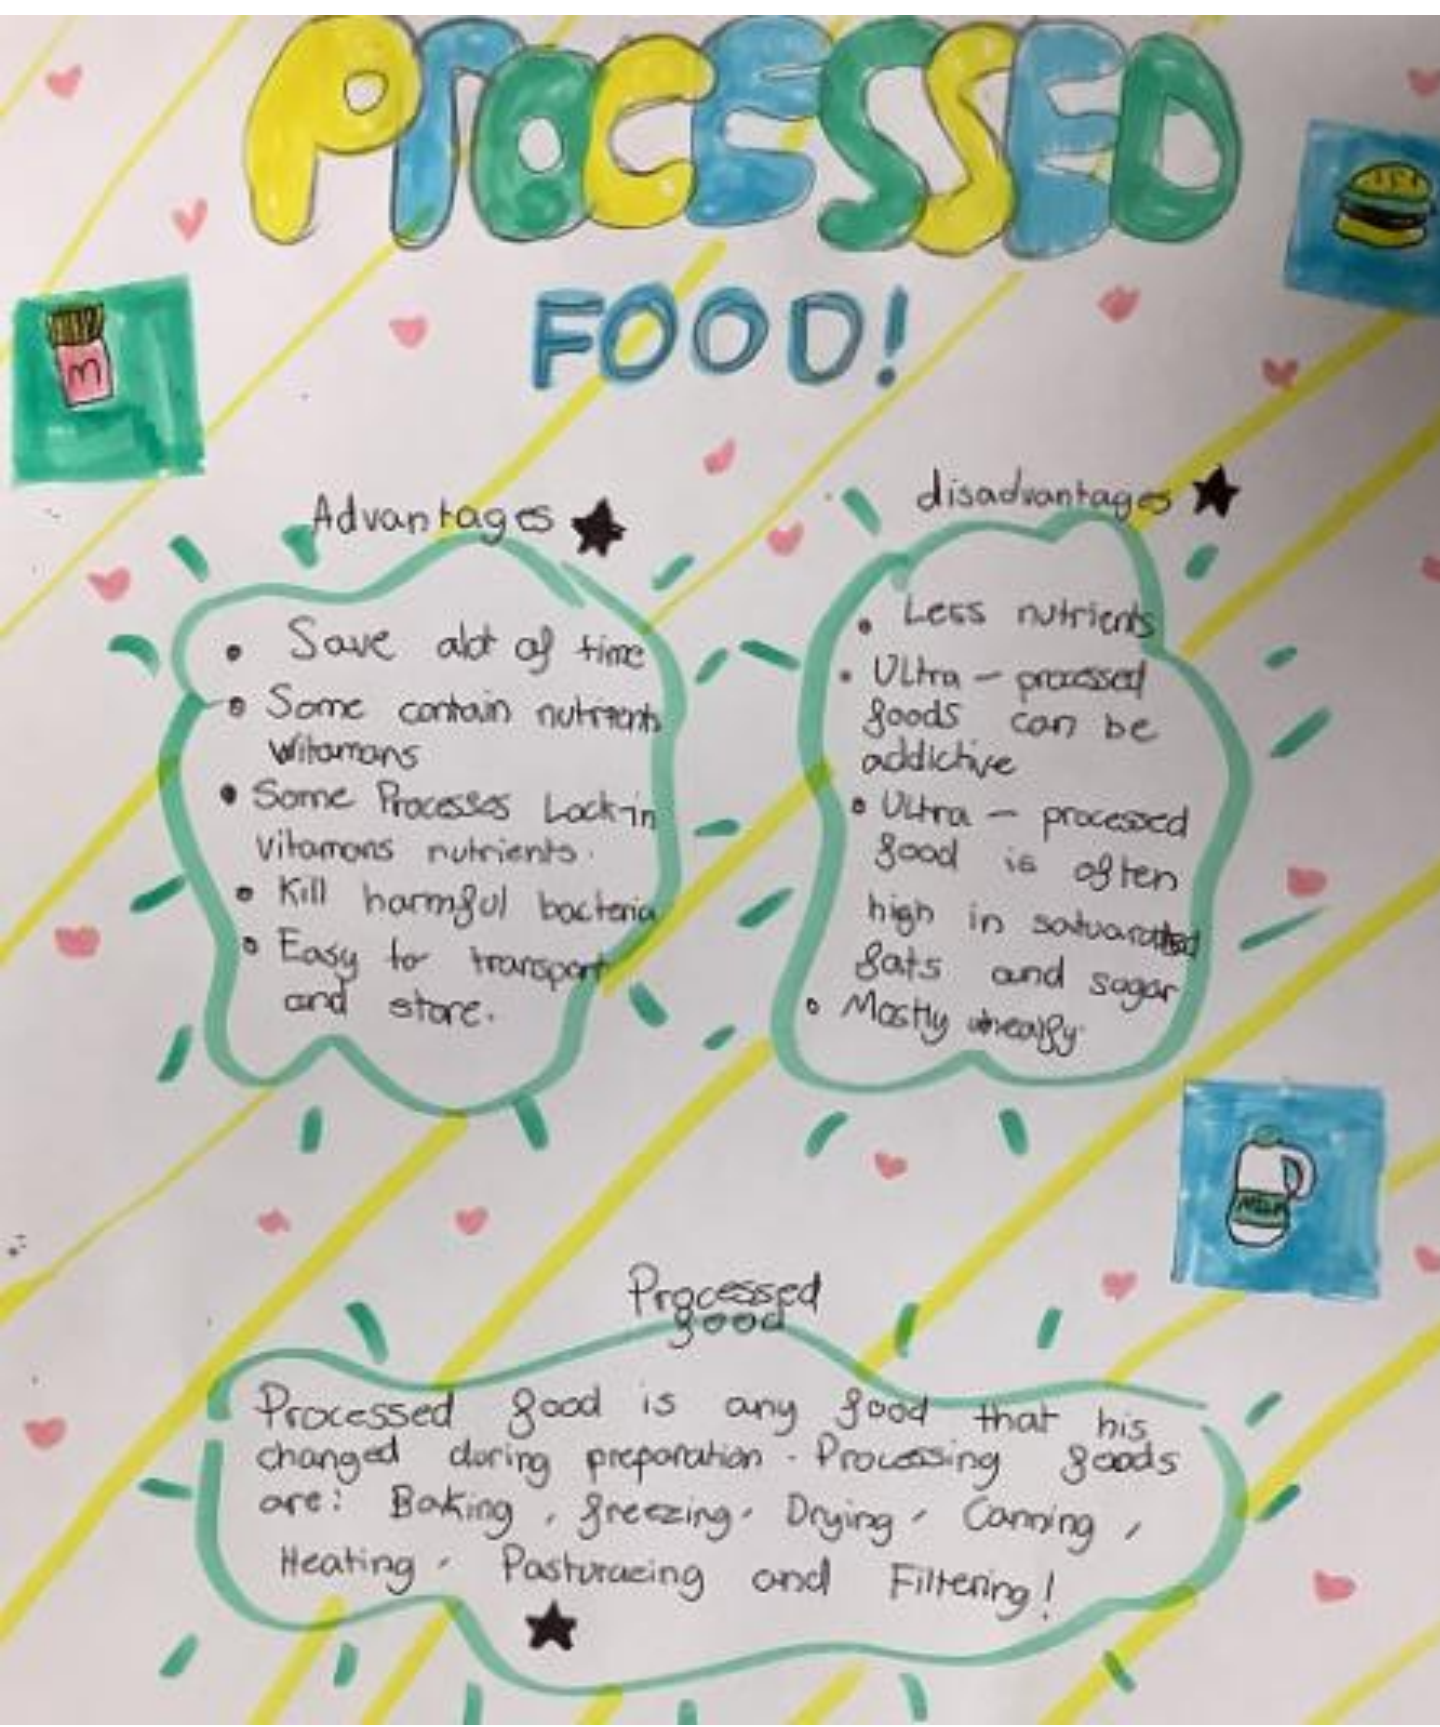 PROCESSED
FOOD!
m
Advantages
Save alot of time
Some contain nutrients
Witamans
Some Processes Lock-in
vitamans nutrients.
Kill harmful bacteria
Easy to transport
and store.
disadvantages
Less nutrients
Ultra - processed
foods can be
addictive
Ultra - processed
food is often
high in
fats and sugar
Mostly
MILK
Processed
food
Processed food is any food that his
changed during preparation. Processing foods
are: Baking, freezing, Drying, Canning,
Heating, Pasturazing and Filtering!